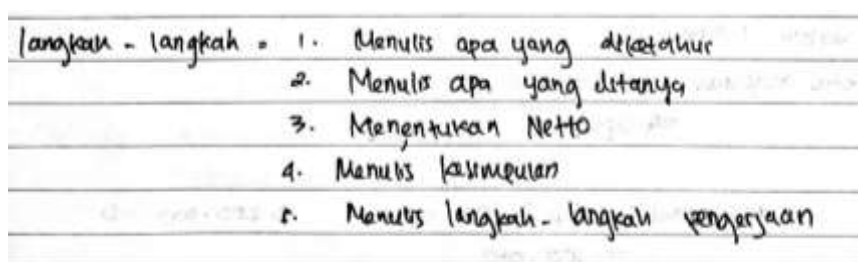 langkah - langkah = 1. Menulis apa yang diketahui
2. Menulis apa yang ditanya
3. Menentukan Netto
4. Menulis kesimpulan
5. Menulis langkah - langkah pengerjaan